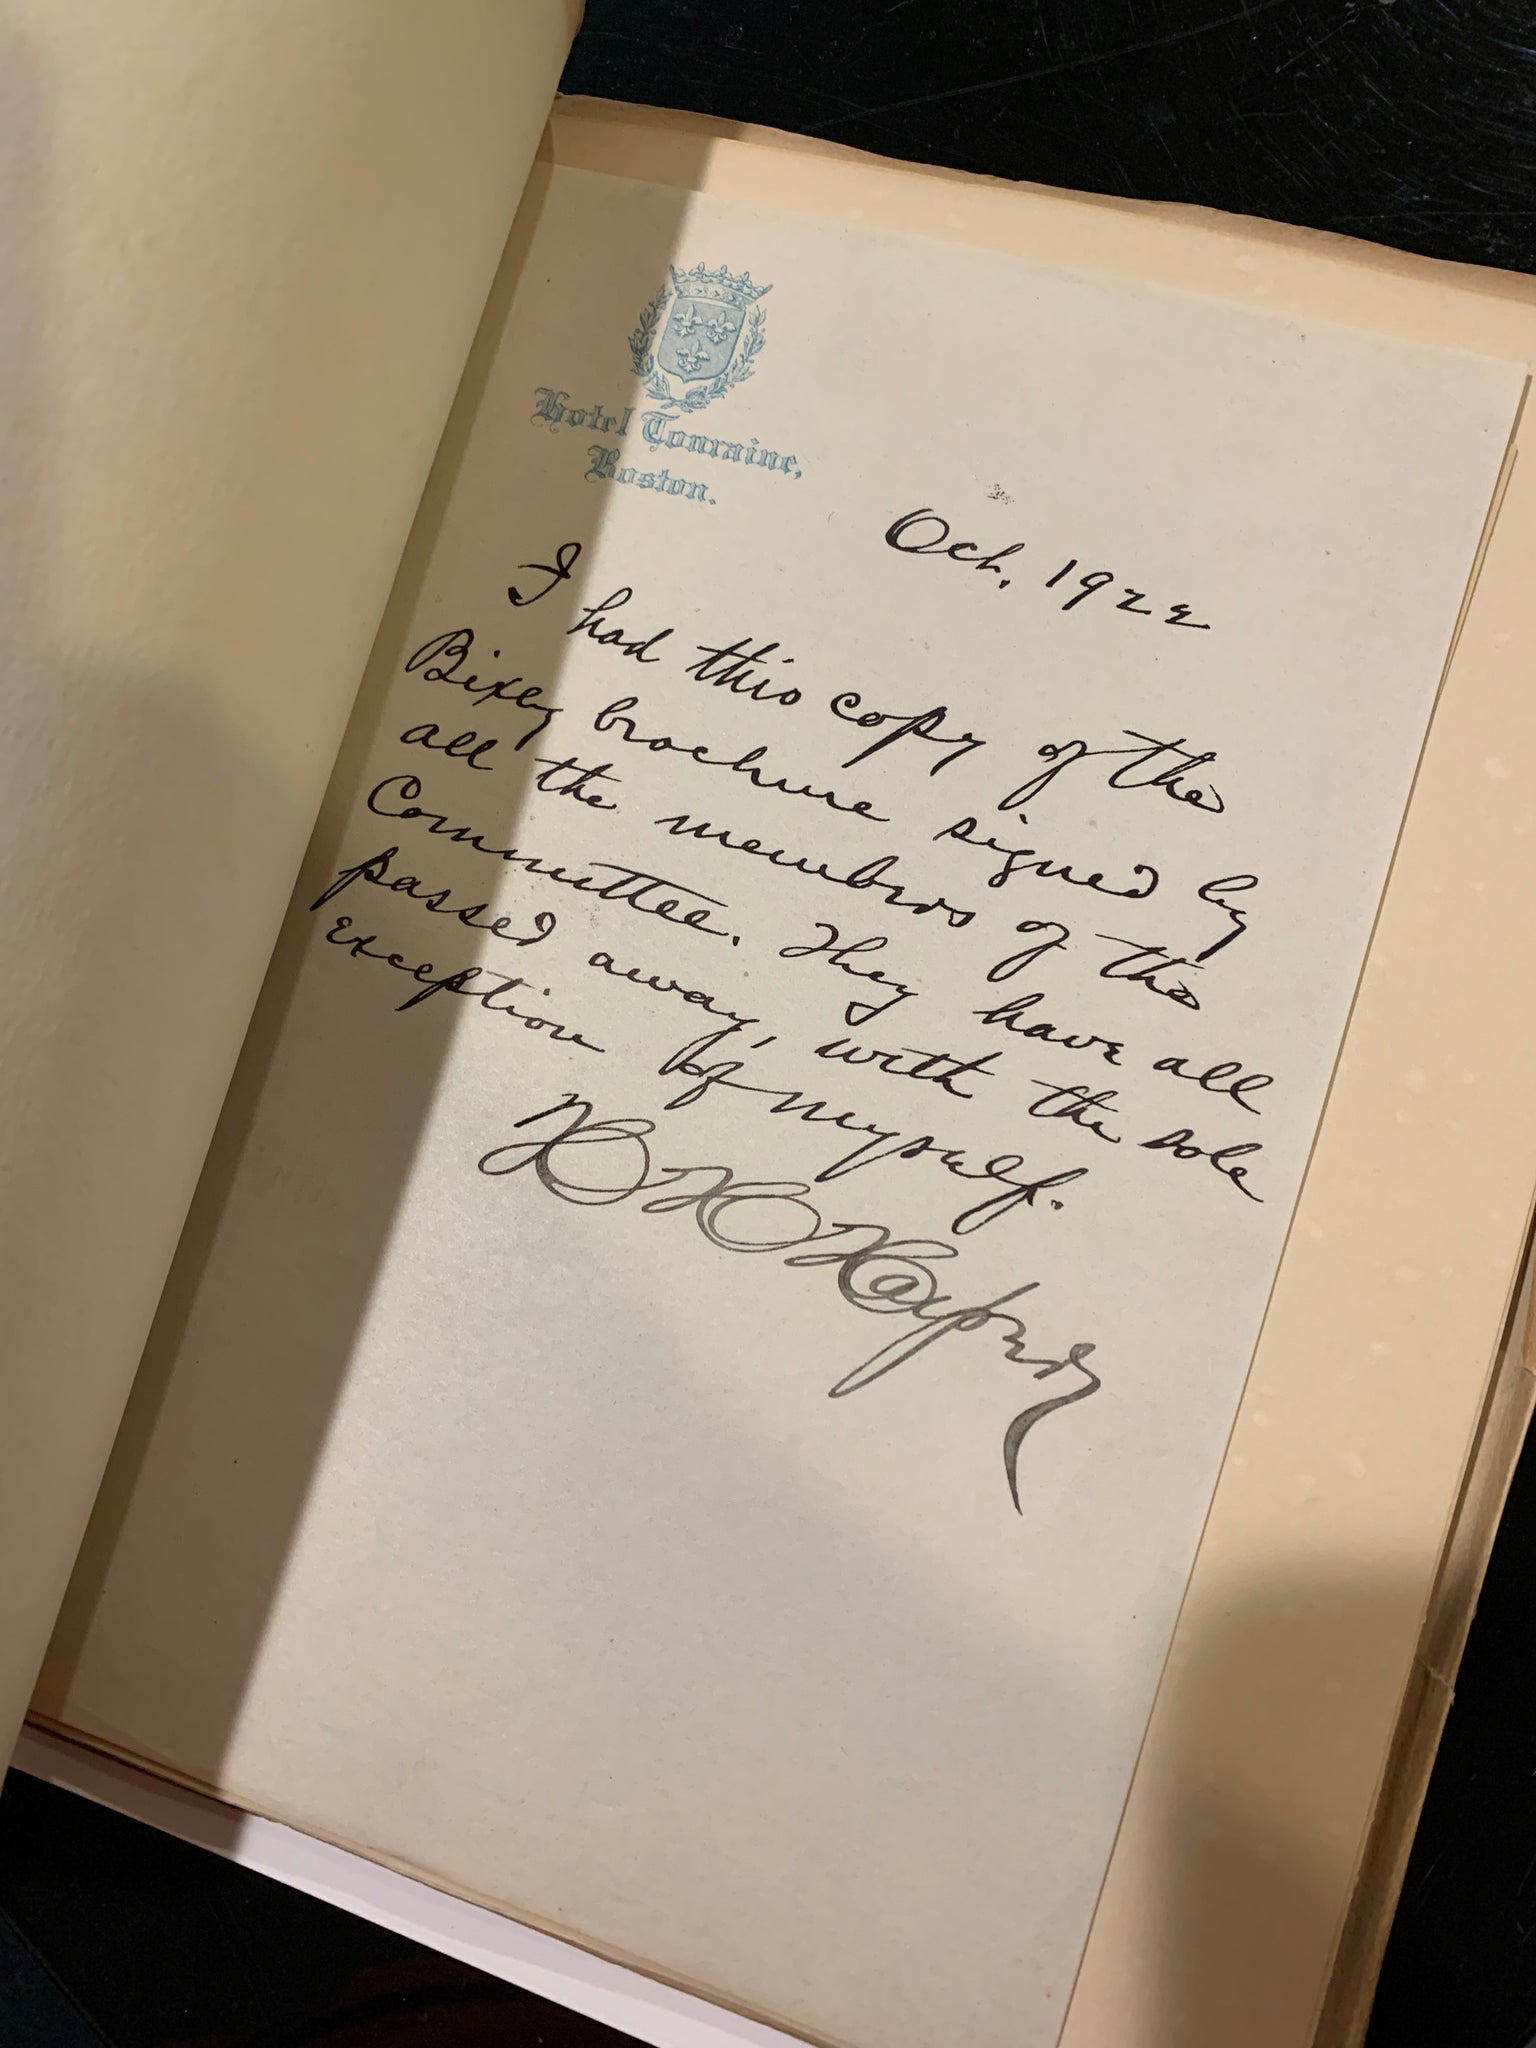 Hotel Touraine,
Boston.
Oct. 1922
I had this copy of the
Bixby brochure signed by
all the members of the
Committee. They have all
passed away, with the sole
exception of myself.
H H Harper